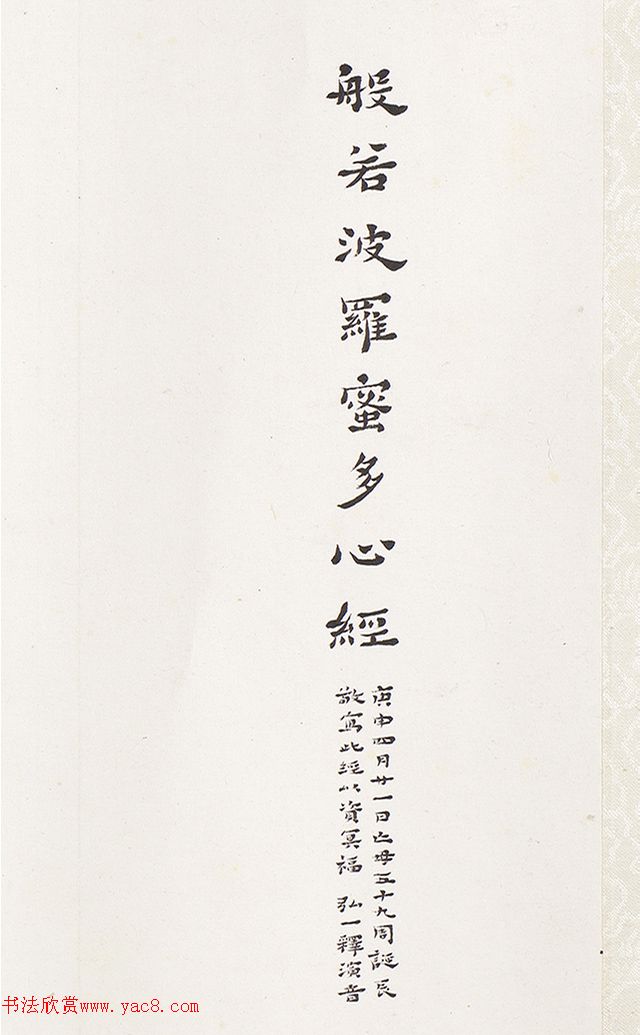 般若波羅蜜多心經
庚申四月廿一日亡母五十九周誕辰
敬寫此經以資冥福 弘一釋演音
书法欣赏www.yac8.com